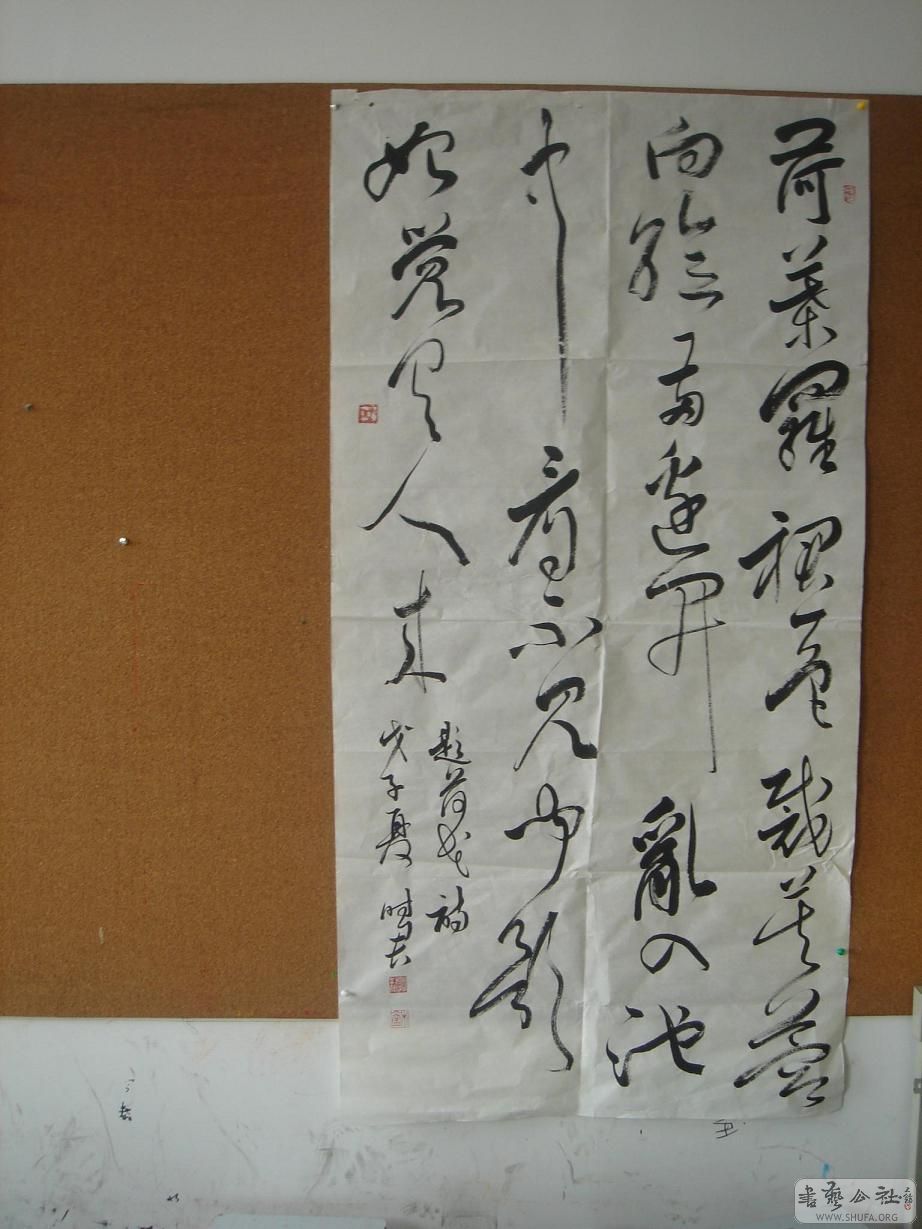 荷葉羅裙一色裁芙蓉
向臉兩邊開亂入池
中看不見聞歌
始覺有人來
題荷花詩
戊子夏
書藝公社
WWW.SHUFA.ORG